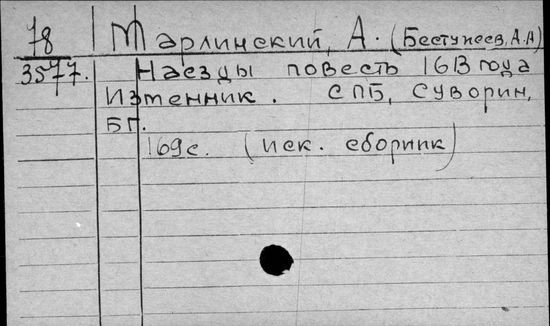 78 Марлинский, А. (Бестужев, А.А)
3577. Наезды повесть 1613 года
Изменник. СПБ, Суворин,
БГ.
169с. (иск. сборник)